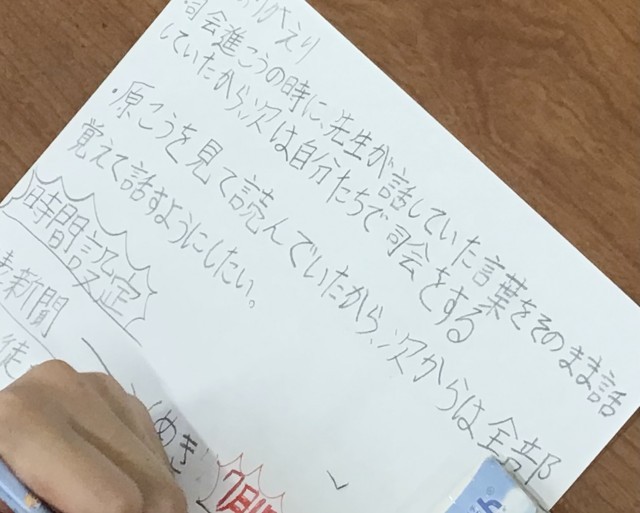 ふりかえり
司会進こうの時に、先生が話していた言葉をそのまま話
していたから、次は自分たちで司会をする
・原こうを見て読んでいたから、次からは全部
覚えて話すようにしたい。
時間設定
新聞
徒
めき